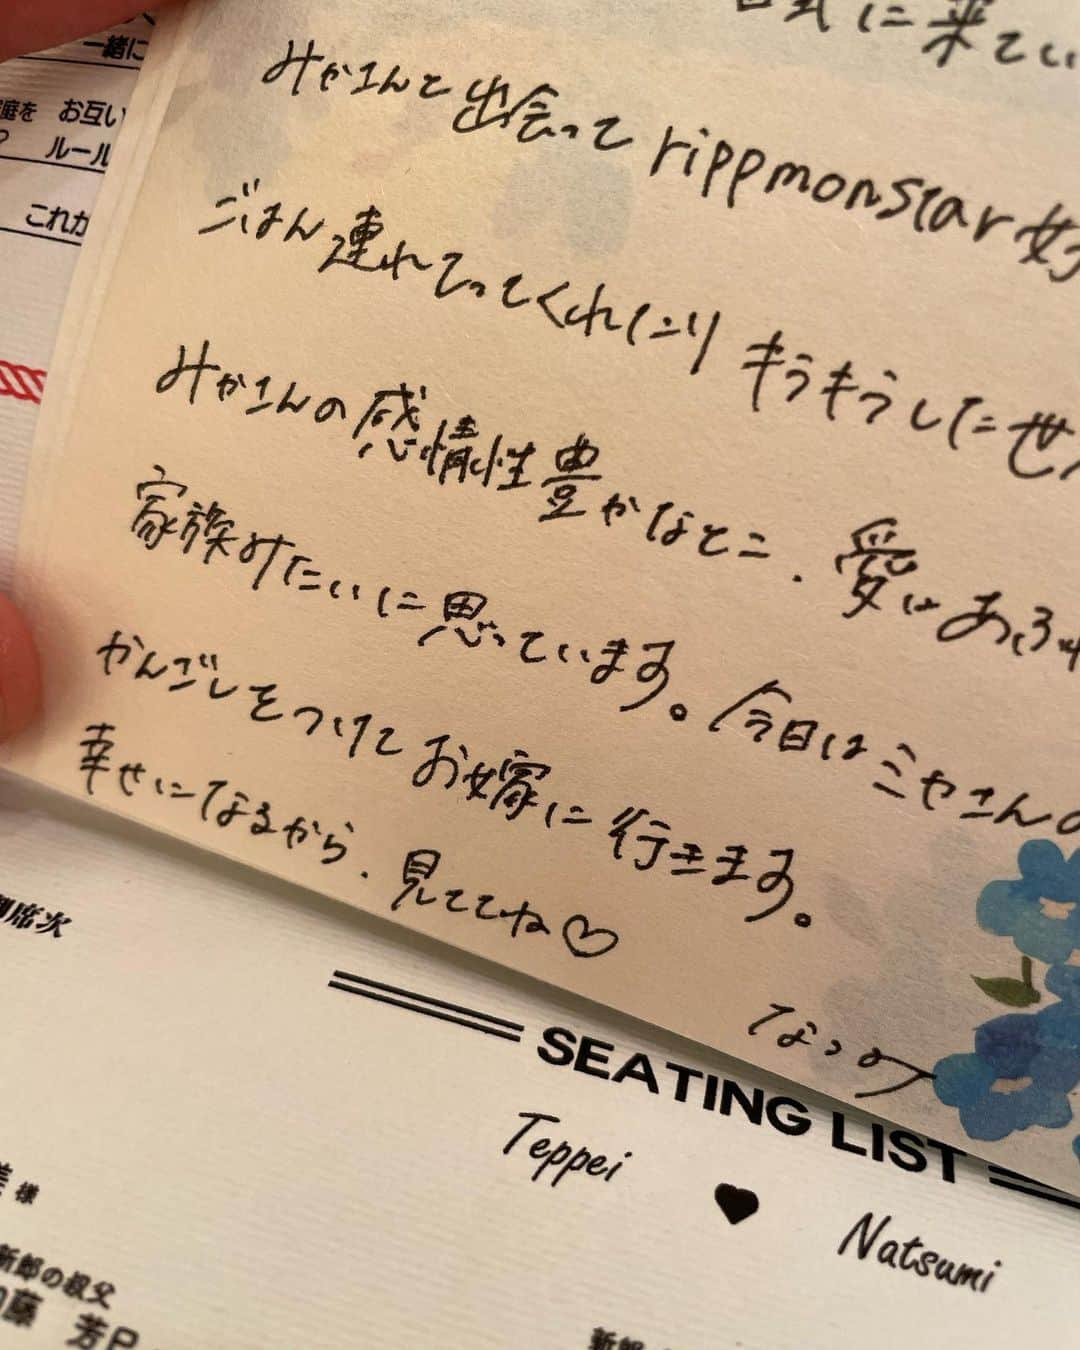 一緒に
庭を お互い
ルール
これか
式に来てい
みかさんと出会って rippmonstar 好
ごはん連れてってくれたり キラキラした世
みかさんの感情性豊かなとこ、愛にあふれ
家族みたいに思っています。今日はミヤさんの
かんざしをつけて お嫁に行きます。
幸せになるから、見ててね♡
なつみ
御席次
SEATING LIST
Teppei ♥ Natsumi
美 様
新郎の叔父
加藤 芳巳
新郎